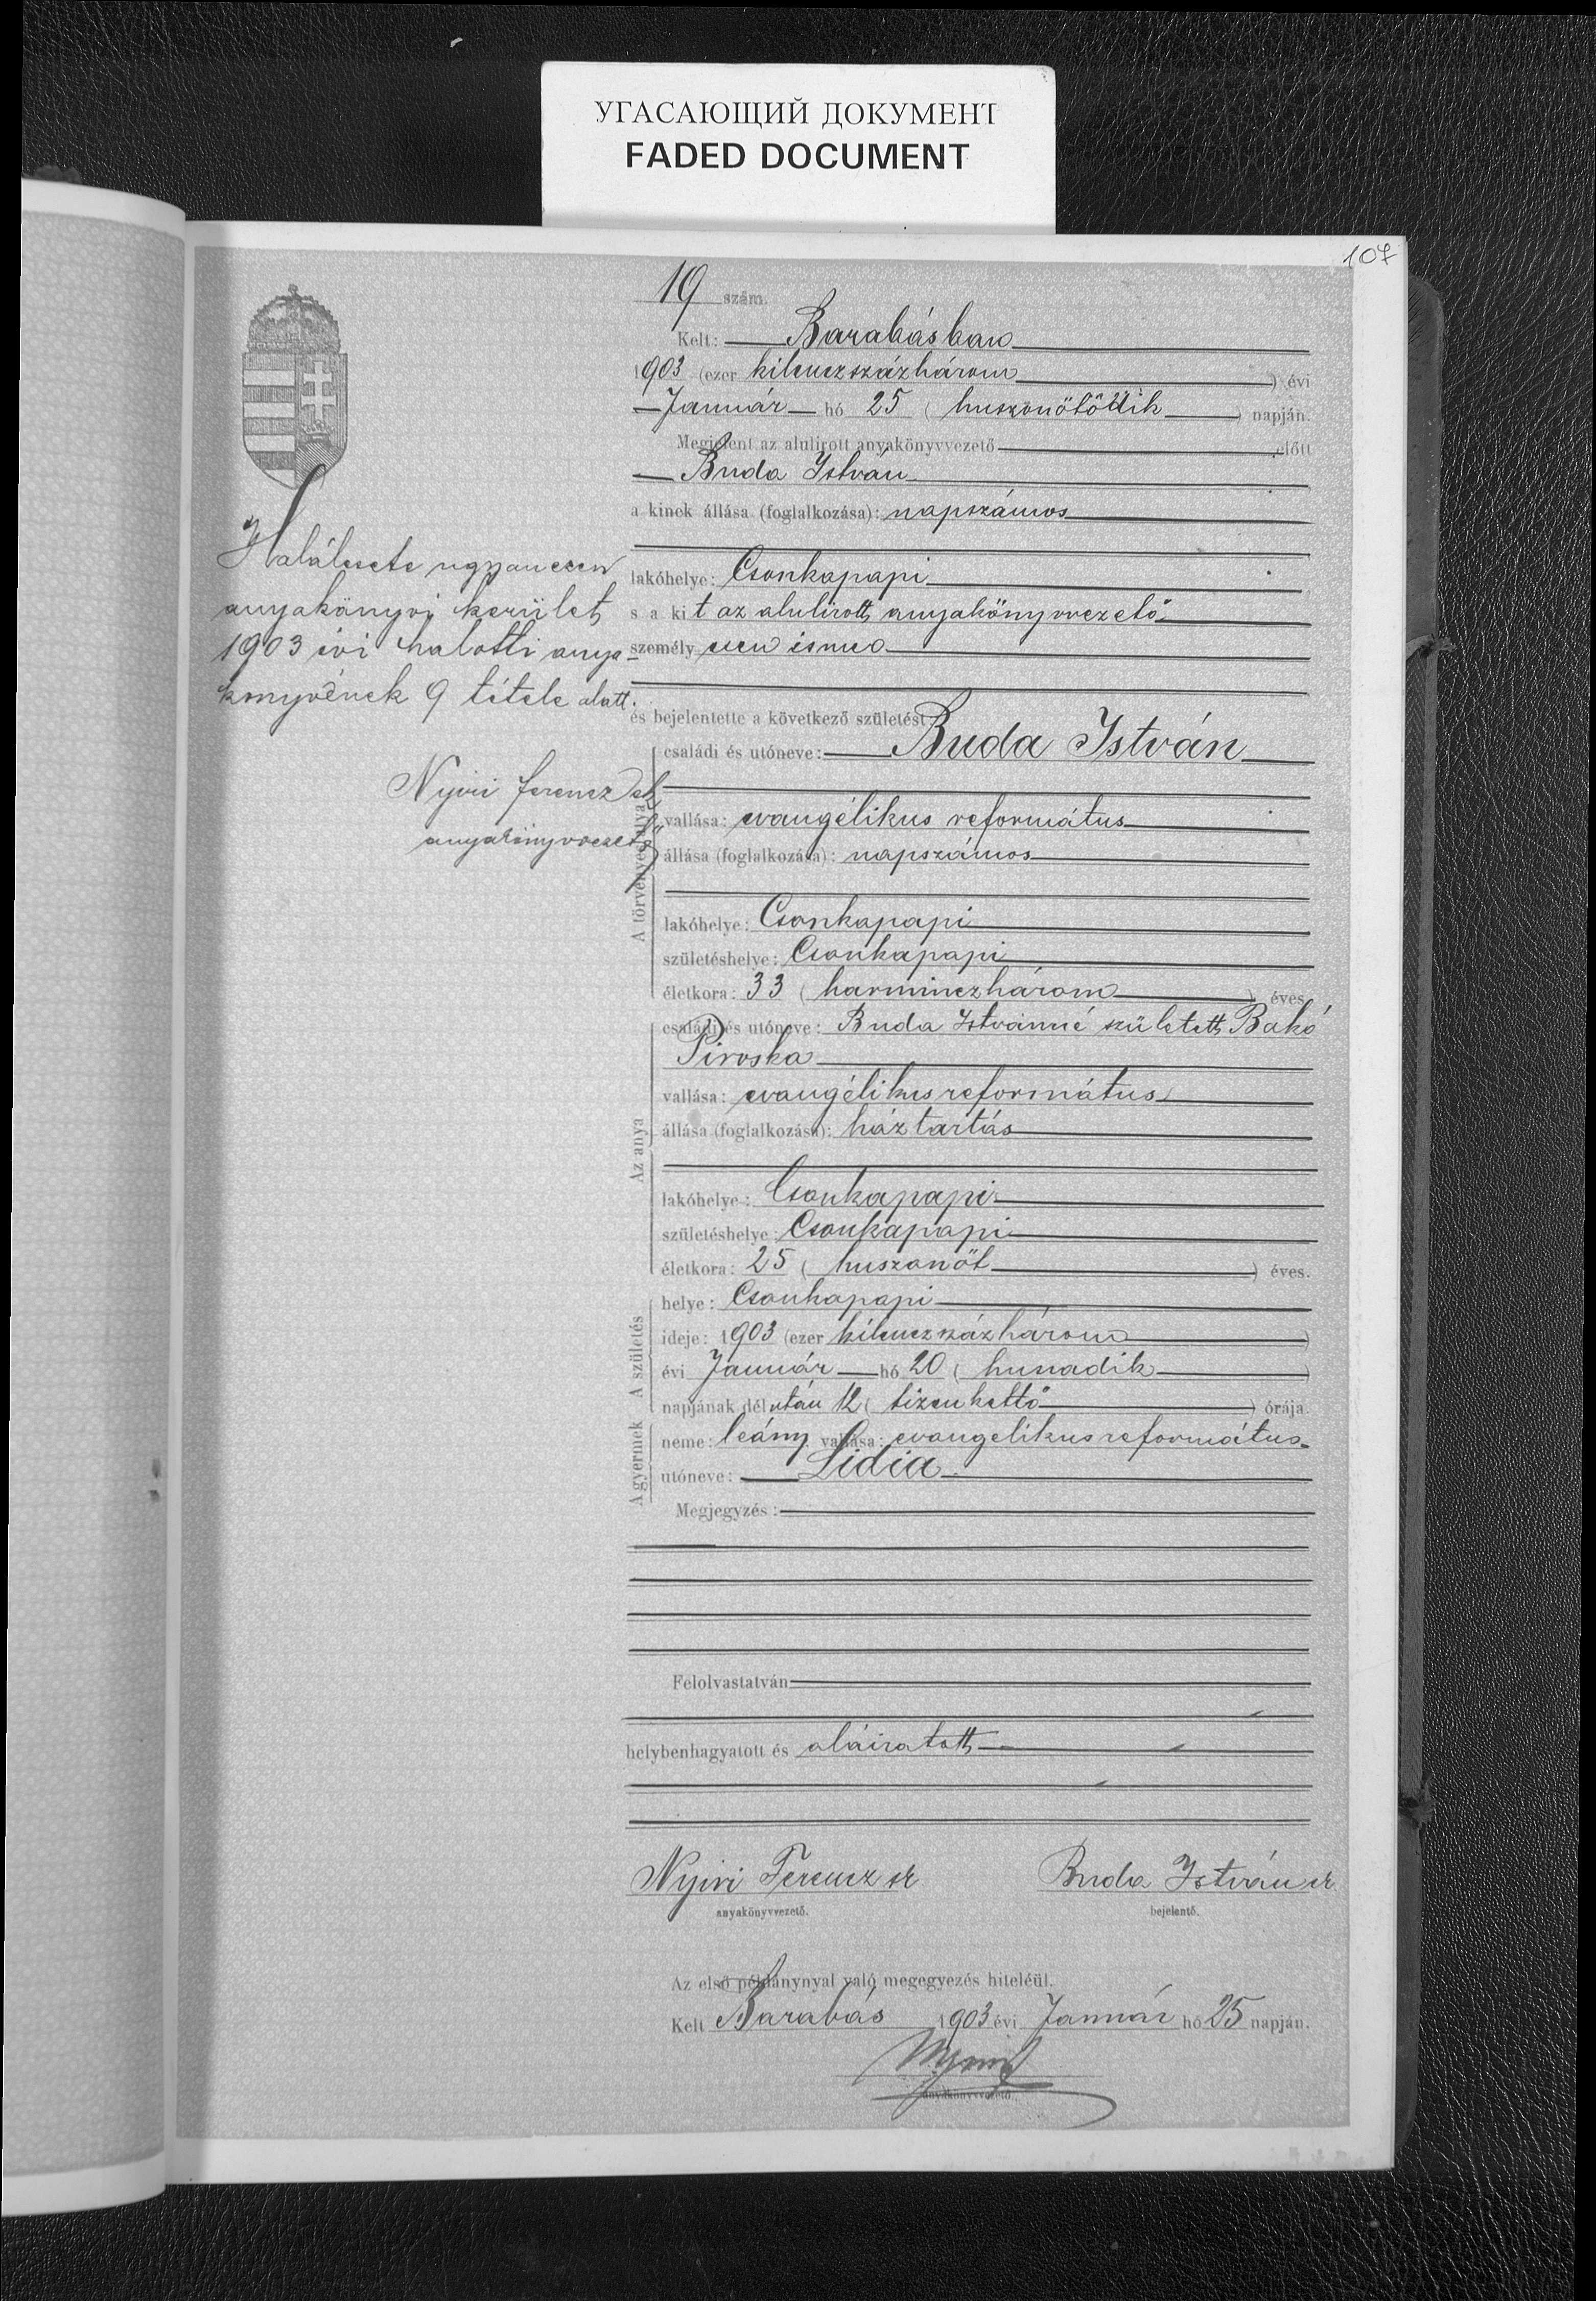 УГАСАЮЩИЙ ДОКУМЕНТ
FADED DOCUMENT
107
19 szám.
Kelt: Barabásban
1903 (ezer kilenczszázhárom) évi
Január hó 25 (huszonötödik) napján.
Megjelent az alulirott anyakönyvvezető előtt
Buda István
a kinek állása (foglalkozása): napszámos
lakóhelye: Csonkapapi
s a kit az alulirott anyakönyvvezető
személyesen ismer
és bejelentette a következő születést:
A törvényes atya
családi és utóneve: Buda István
vallása: evangélikus református
állása (foglalkozása): napszámos
lakóhelye: Csonkapapi
születéshelye: Csonkapapi
életkora: 33 (harminczhárom) éves.
Az anya
családi és utóneve: Buda Istvánné született Bakó
Piroska
vallása: evangélikus református
állása (foglalkozása): háztartás
lakóhelye: Csonkapapi
születéshelye: Csonkapapi
életkora: 25 (huszonöt) éves.
A születés
helye: Csonkapapi
ideje: 1903 (ezer kilenczszázhárom)
évi Január hó 20 (huszadik)
napjának délután 12 (tizenkettő) órája.
A gyermek
neme: leány vallása: evangelikus református
utóneve: Lidia
Megjegyzés:
Felolvastatván
helybenhagyatott és aláiratott
Nyiri Ferencz sk
Buda István sk
anyakönyvvezető.
bejelentő.
Az első példánynyal való megegyezés hiteléül.
Kelt Barabás 1903 évi Január hó 25 napján.
Nyiri
anyakönyvvezető.
Halálesete ugyanezen
anyakönyvi kerület
1903 évi halotti anya-
konyvének 9 tétele alatt.
Nyiri ferencz sk
anyakönyvvezető